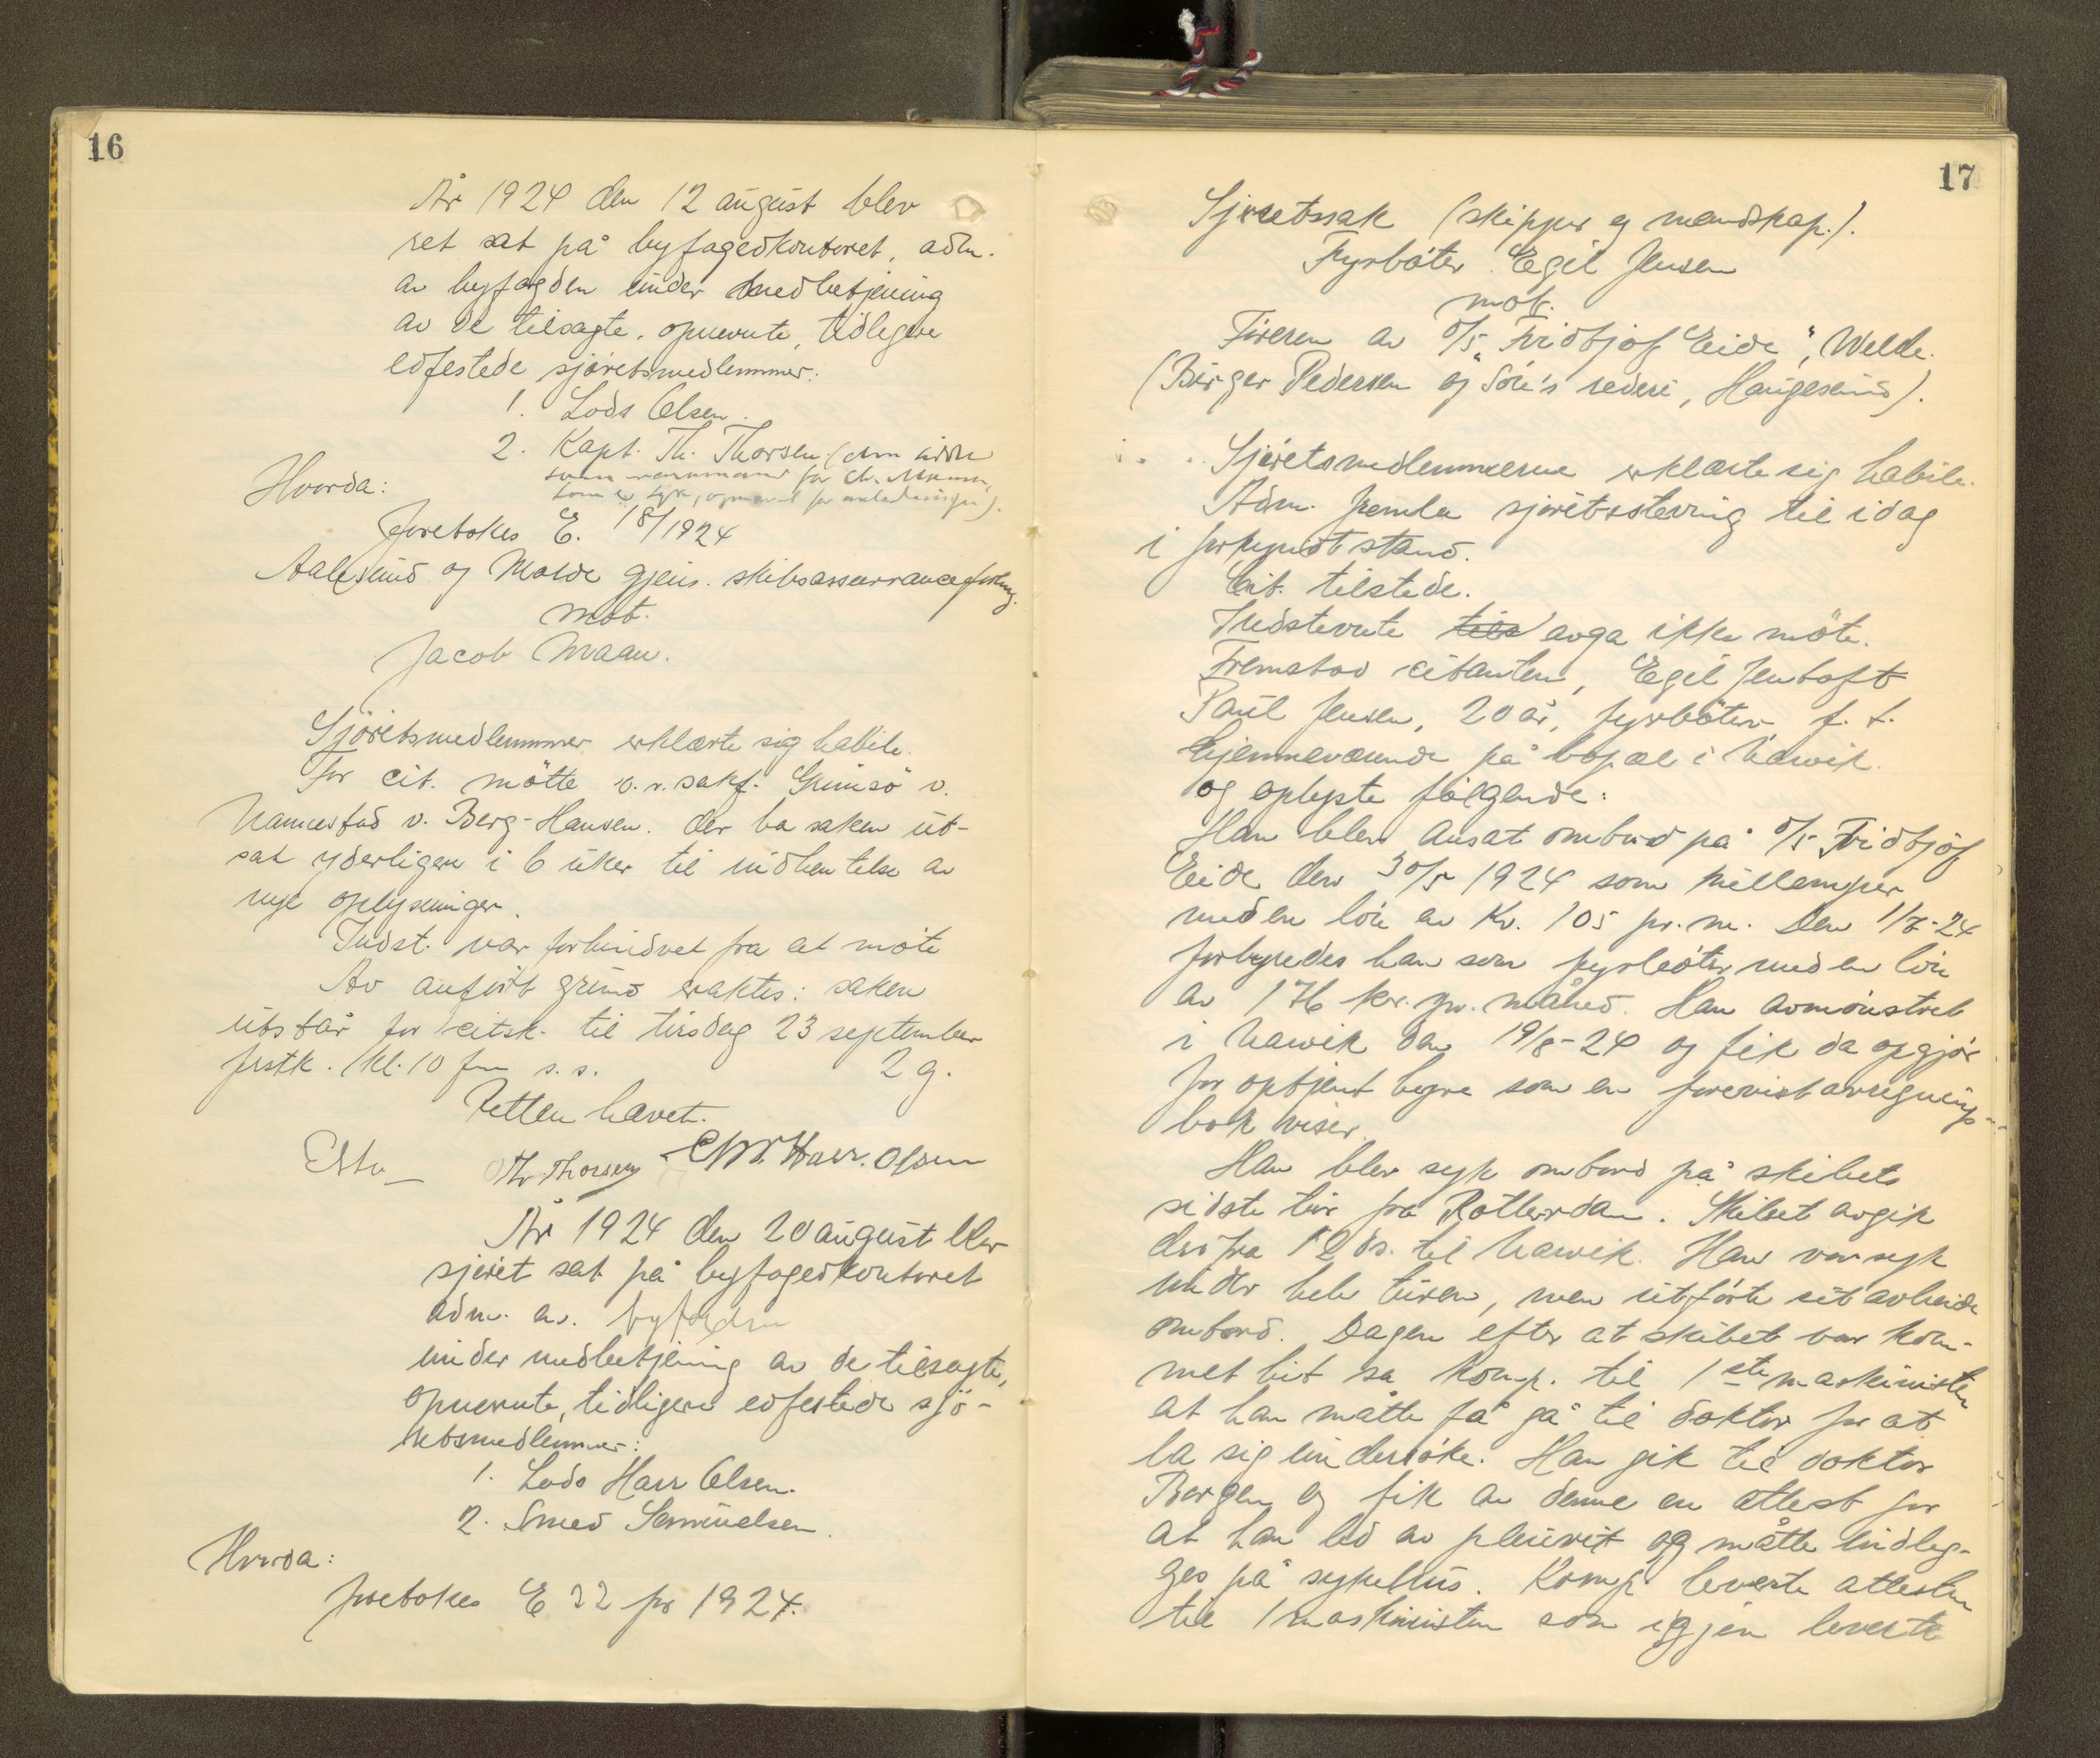 16
År 1924 den 12 august blev
ret sat på byfogedkontoret, adm.
av byfogden under medbetjening
av de tilsagte, opnevnte, tidligere
edfestede sjøretsmedlemmer:
1. Lods Olsen.
2. Kapt. Th. Thorsen (den sidste
som varamand for
som er syk,
Hvorda:
Foretokes E. 18/1924
Aalesund og Molde gjens. skibsassurranceforening.
mot.
Jacob Maan.
Sjöretsmedlemmer erklærte sig habile.
For cit. mötte o.r.sakf. Grimsö v.
Namnestad v. Berg-Hansen. der ba saken ut-
sat yderligere i 6 uker til indhentelse av
nye oplysninger.
Indst. var forhindret fra at möte
Av anfört grund eraktes: saken
utstår for citsk. til tirsdag 23 september
førstk. kl. 10 fm s. s. 2 g.
Retten hævet.
Th. Thorsen Chr. Harr. Olsen
År 1924 den 20 august blev
sjøret sat på byfogedkontoret
adm. av. byfogden
under medbetjening av de tilsagte,
opnevnte, tidligere edfestede sjö-
retsmedlemmer:
1. Lods Harr Olsen.
2. Smed Samuelsen.
Hvorda:
foretokes E 22 for 1924.
17
Sjøretssak (skipper og mandskap.).
Fyrbøter Egil Jensen
mot.
Føreren av D/S "Fridtjof Eide", Welde.
(Birger Pedersen og Søn's rederi, Haugesund).
Sjøretsmedlemmerne erklærte sig habile.
Adm. fremla sjøretsstevning til idag
i forkyndt stand.
Cit. tilstede.
Indstevnte tils avga ikke möte.
Fremstod citanten, Egil Jentoft
Paul Jensen, 20 år, fyrböter f. t.
hjemmeværende på bopæl i Narvik.
og oplyste følgende:
Han blev ansat ombord på D/S Fridtjof
Eide den 30/5 1924 som kullemper
med en løn av Kr. 105 pr. m. Den 1/7-24
forhyredes han som fyrbøter med en løn
av 176 kr. pr. måned. Han avmønstret
i Narvik den 19/8-24 og fik da opgjør
for optjent hyre som en forevist avregnings-
bok viser.
Han blev syk ombord på skibets
sidste tur fra Rotterdam. Skibet avgik
derfra 12 ds. til Narvik. Han var syk
under hele turen, men utførte sit arbeide
ombord. Dagen efter at skibet var kom-
met hit sa komp. til 1ste maskinisten
at han måtte få gå til doktor for at
la sig undersöke. Han gik til doktor
Borgen og fik av denne en attest for
at han led av pleurit og måtte indleg-
ges på sykehus. Komp. leverte attesten
til 1 maskinisten som igjen leverte